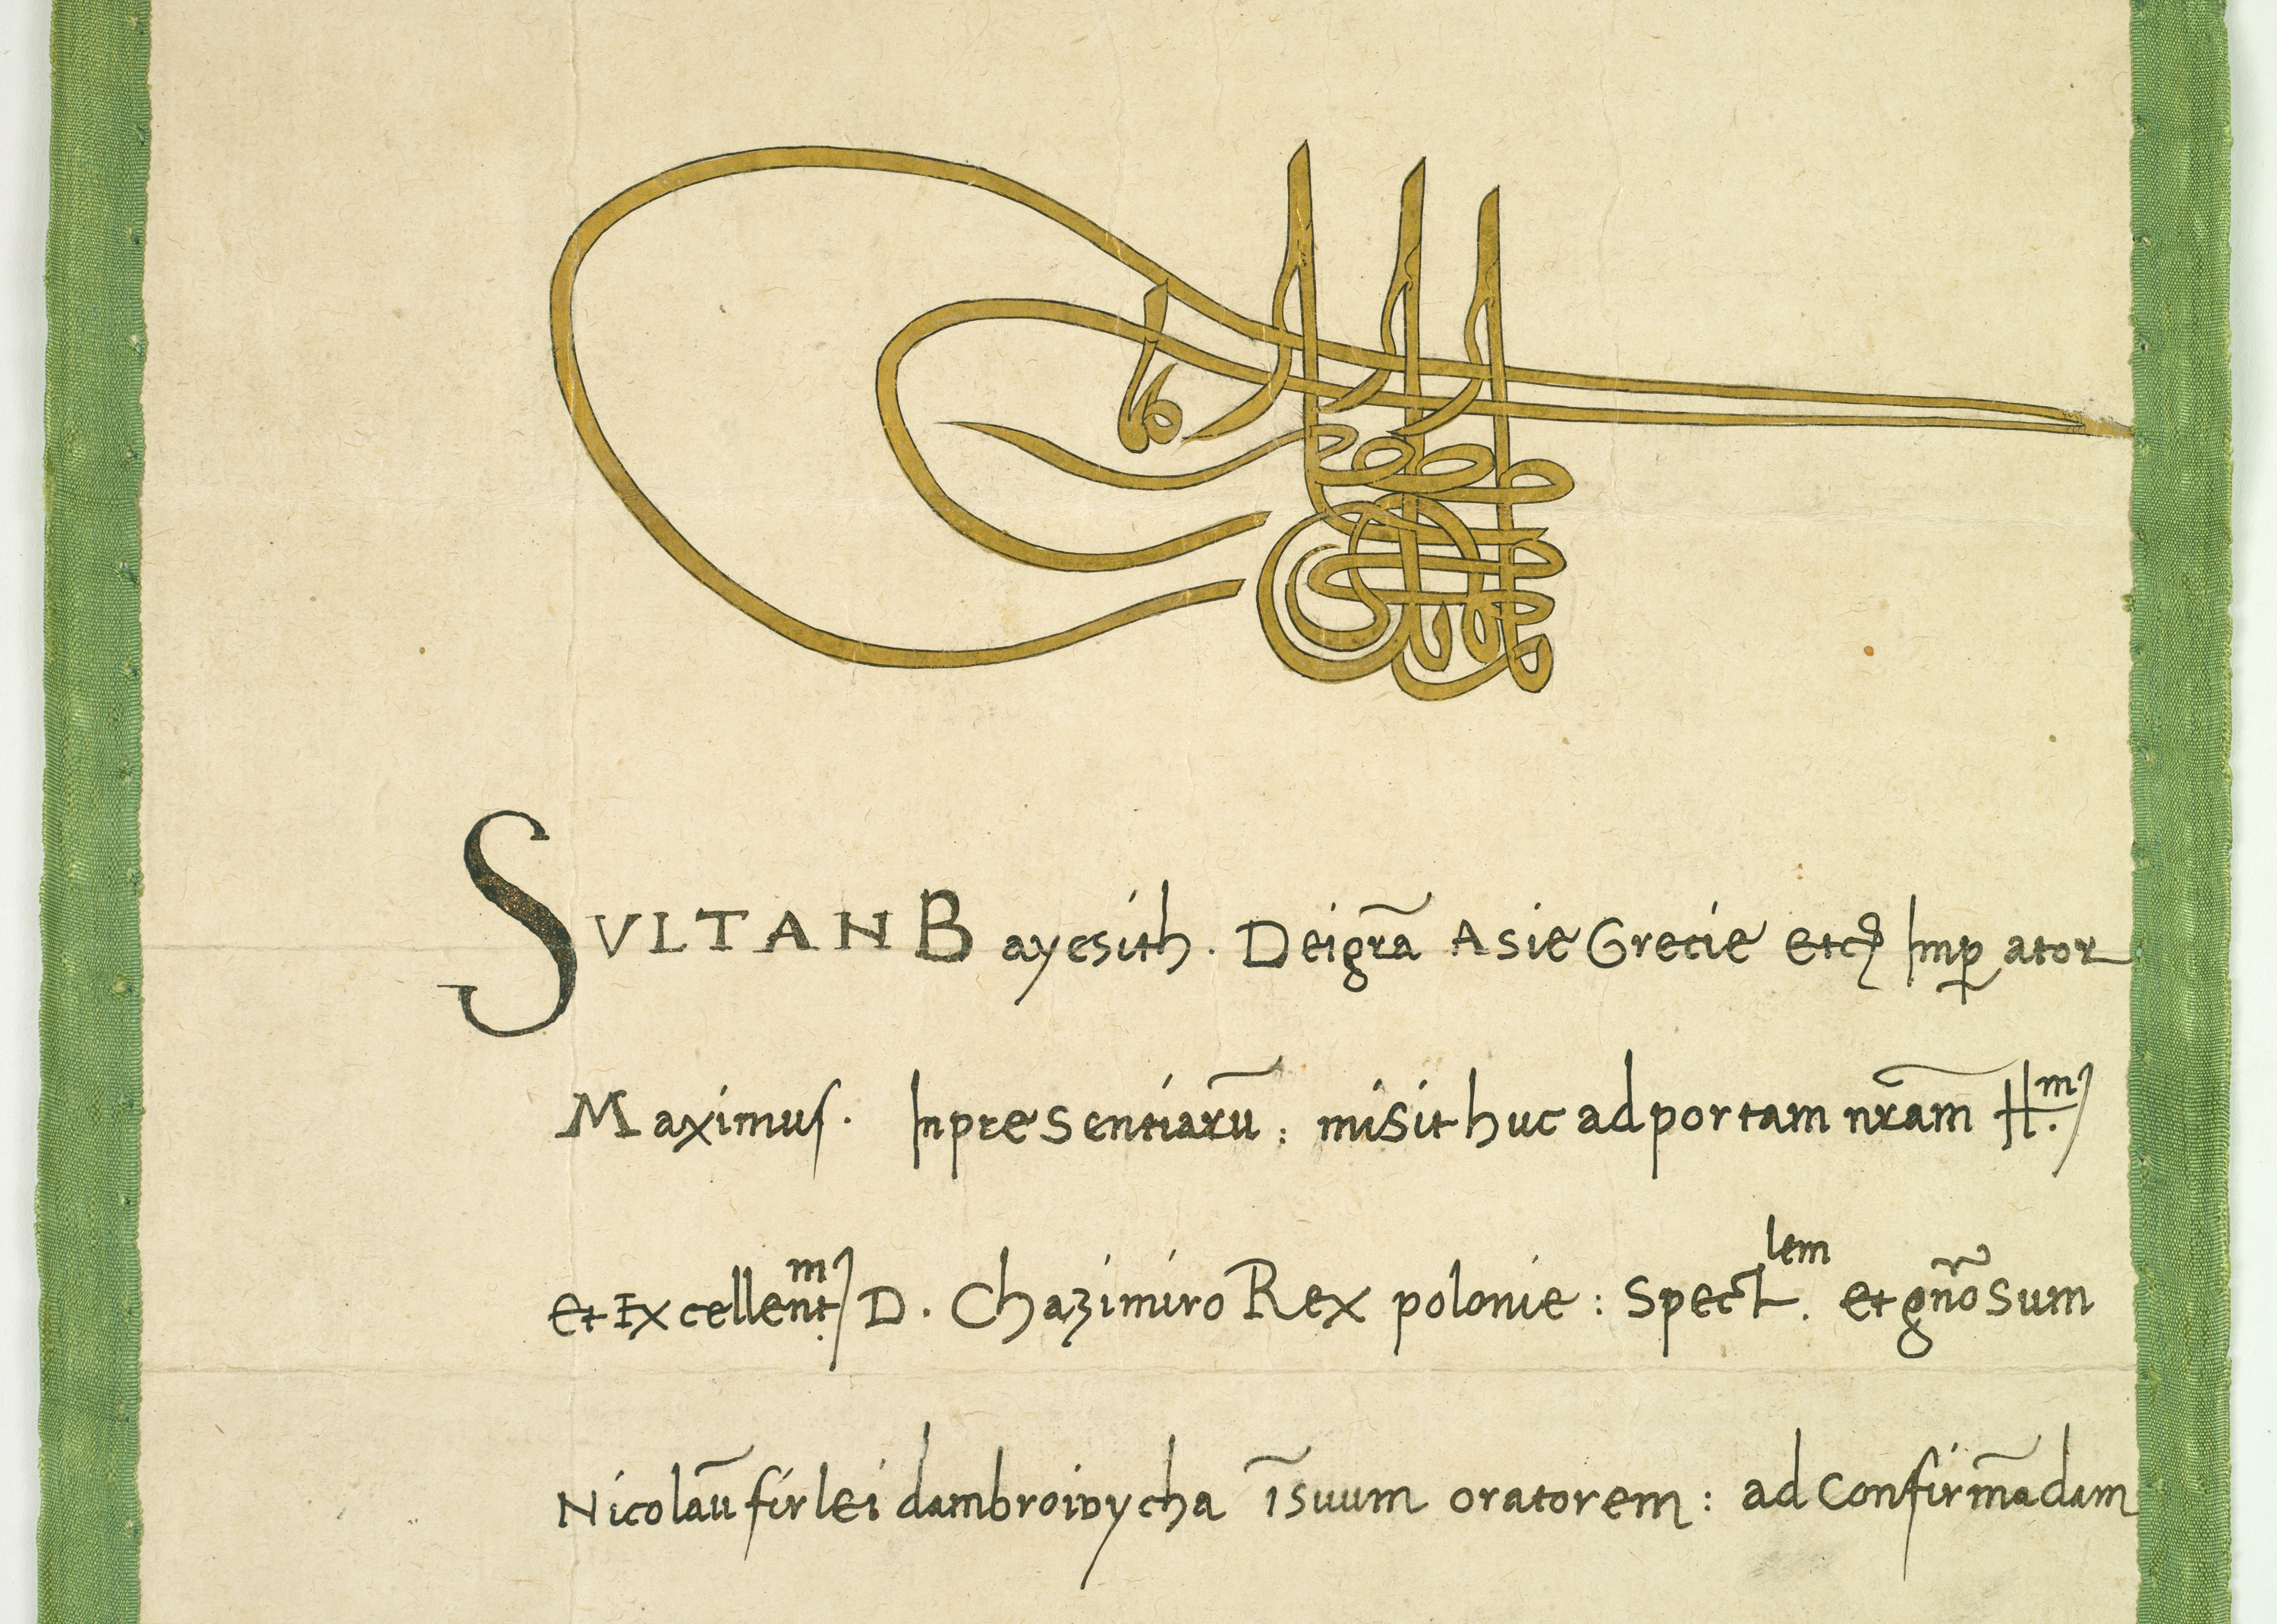 SULTAN Bayesith. Dei gr̃a Asie Grecie etcꝫ Imꝑator
Maximuſ. In presentiarũ: misit huc ad portam nr̃am H.ᵐ
et Excellent.ᵐ D. Chazimiro Rex polonie: Spectˡᵉᵐ. et gñosum
Nicolaũ firlei dambroivycha ĩ suum oratorem: ad confirmãdam